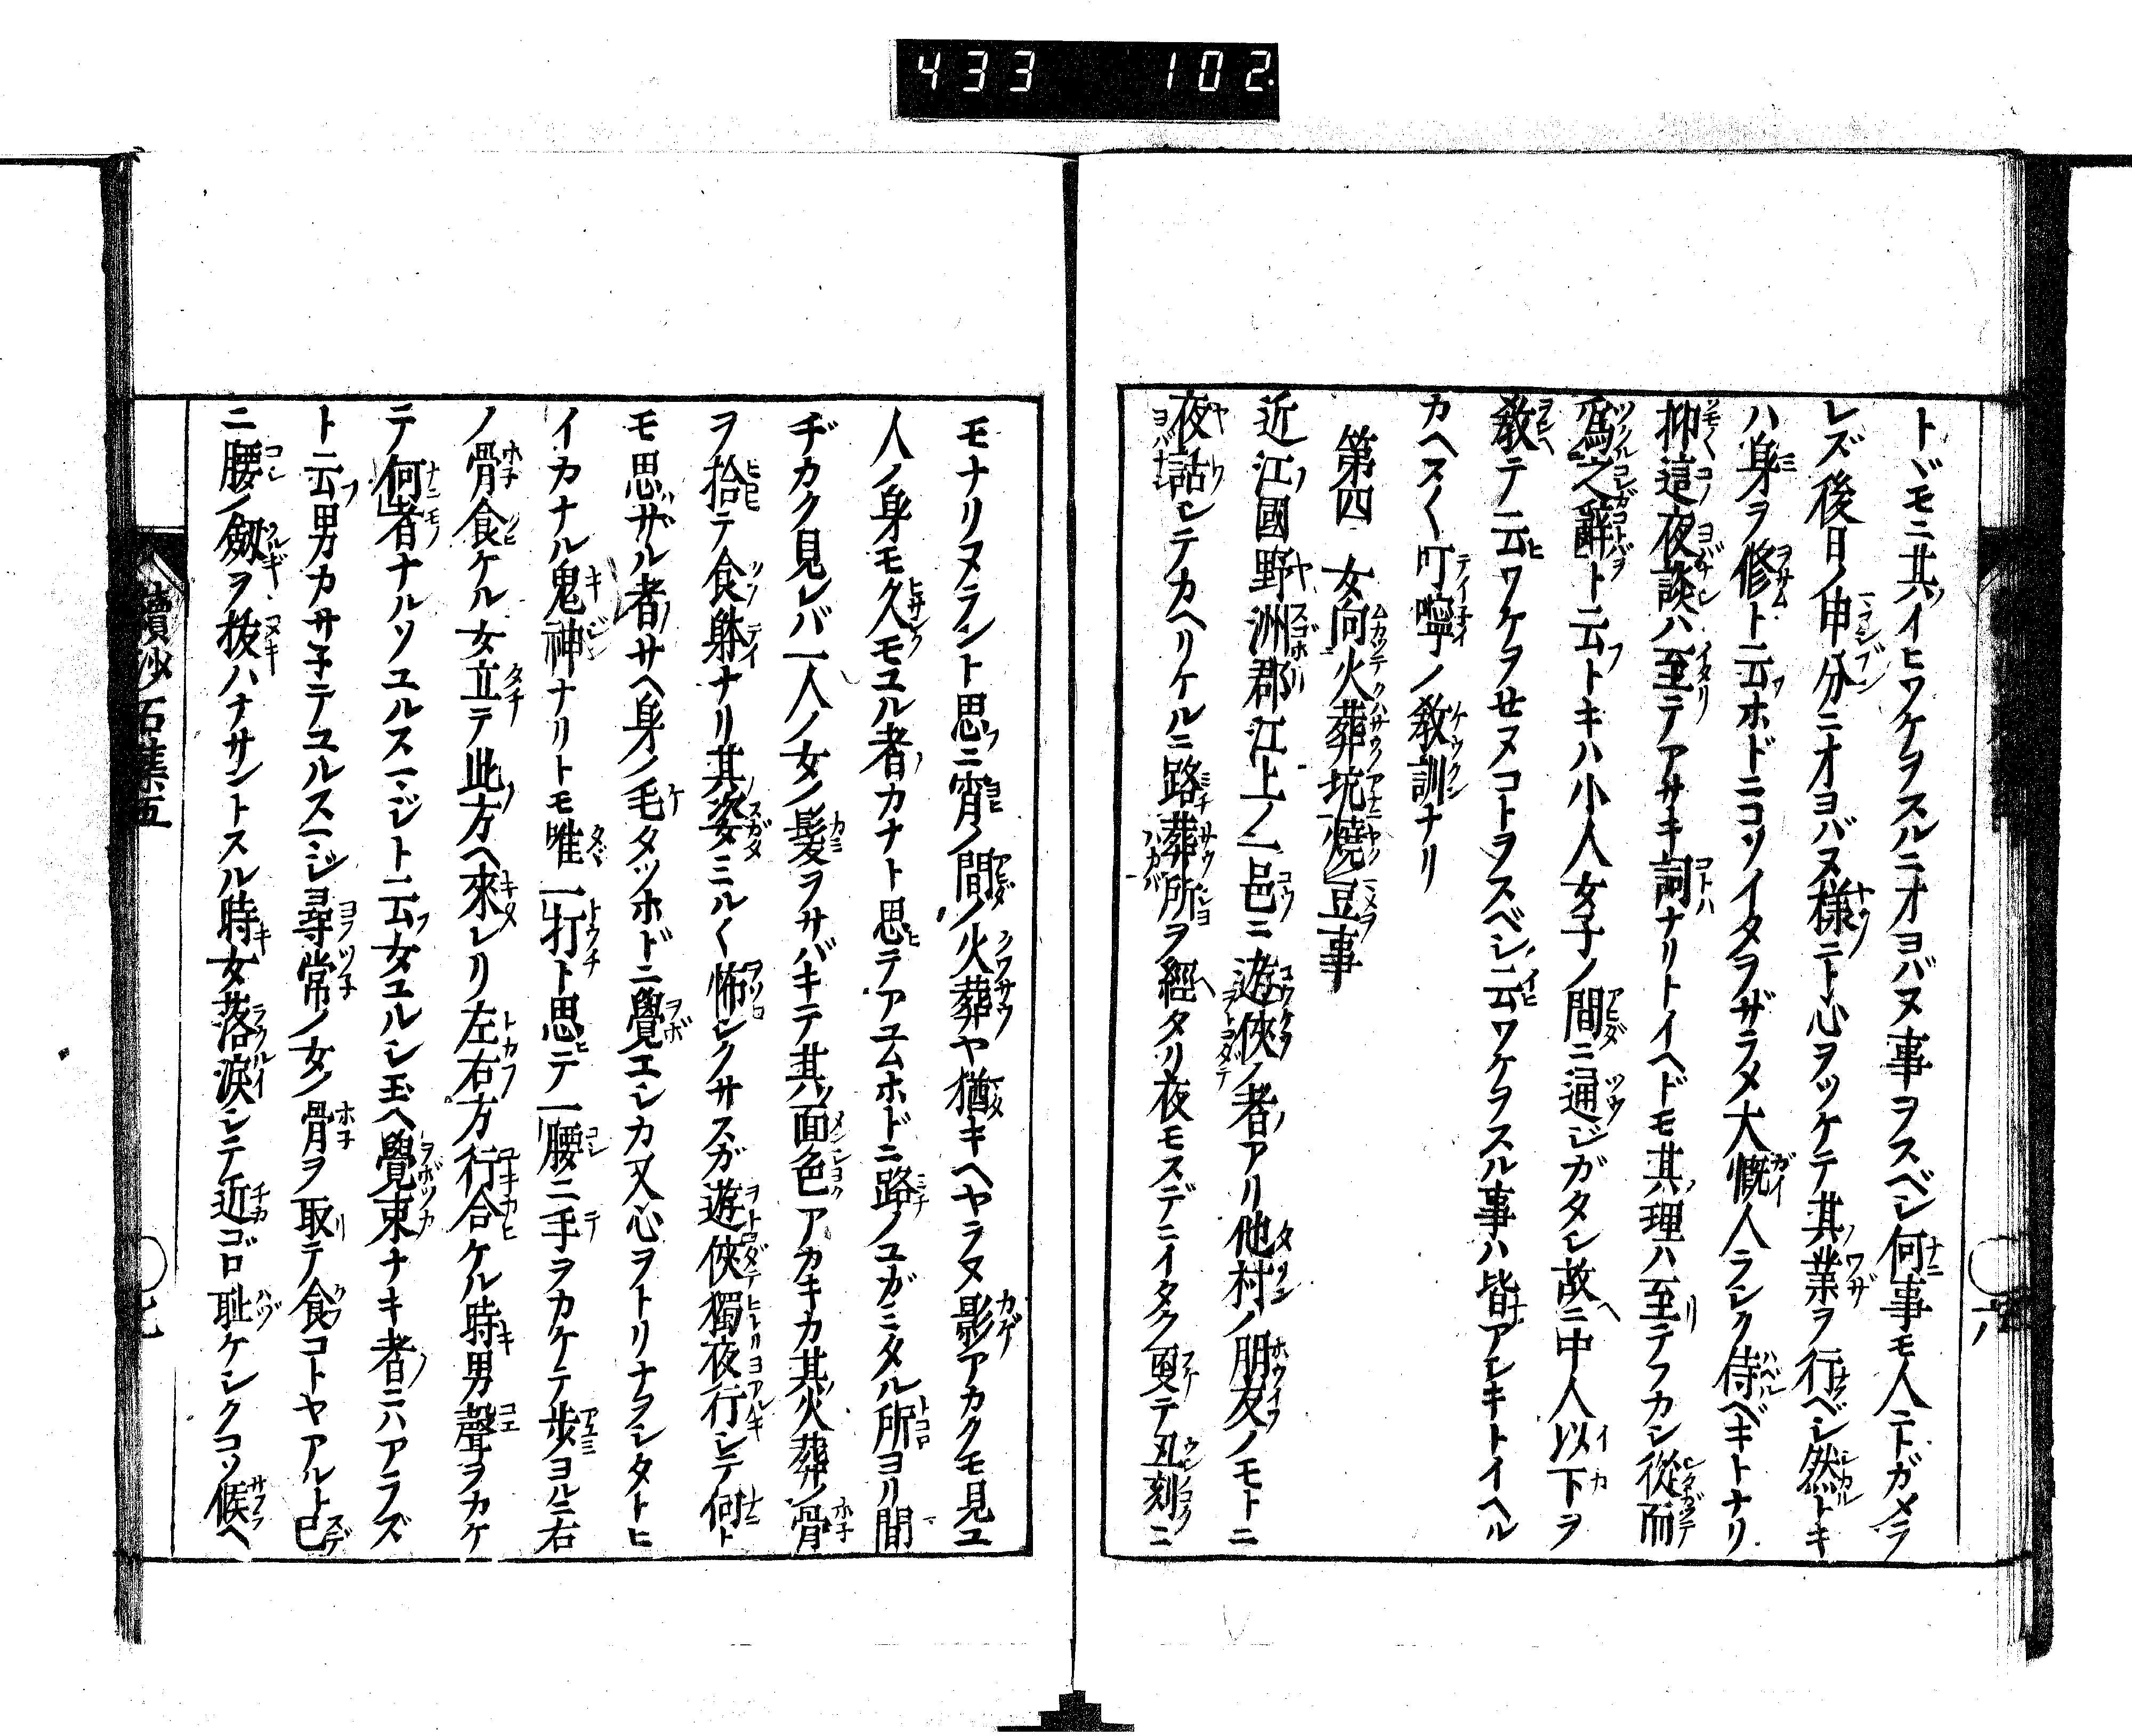 433 102.
トヾモニ共イヒワケヲスルニオヨバヌ事ヲスベシ何事モ人ニトガメラ
レズ後日ノ申分ニオヨバヌ様ニト心ヲツケテ其業ヲ行ベシ然トキ
ハ身ヲ修ト云ホドニコソイタラザラメ大慨人ラシク侍ベキトナリ
抑這夜談ハ至テアサキ詞ナリトイヘドモ其理ハ至テフカシ從而
爲之辭ト云トキハ小人女子ノ間ニ通ジガタシ故ニ中人以下ヲ
教テ云ワケヲセヌコトヲスベシ云ワケヲスル事ハ皆アシキトイヘル
カヘス〱叮嚀ノ教訓ナリ
第四 女向火葬坑燒豆事
近江國野洲郡江上ノ一邑ニ遊俠ノ者アリ他村ノ朋友ノモトニ
夜話シテカヘリケルニ路葬所ヲ經タリ夜モスデニイタク更テ丑刻ニ
モナリヌラント思ニ宵ノ間ノ火葬ヤ猶キヘヤラヌ影アカクモ見ユ
人ノ身モ久モユル者カナト思テアユムホドニ路ノユガミタル所ヨリ間
ヂカク見レバ一人ノ女ノ髪ヲサバキテ其面色アカキカ其火葬ノ骨
ヲ拾テ食躰ナリ其姿ミル〱怖シクサスガ遊俠獨夜行シテ何ト
モ思ザル者サヘ身ノ毛タツホドニ覺エシカ又心ヲトリナヲシタトヒ
イカナル鬼神ナリトモ唯一打ト思テ一腰ニ手ヲカケテ歩ヨルニ右
ノ骨食ケル女立テ此方ヘ來レリ左右方行合ケル時男聲ヲカケ
テ何者ナルソユルスマジト云女ユルシ玉ヘ覺束ナキ者ニハアラズ
ト云男カサ子テユルスマジ尋常ノ女ノ骨ヲ取テ食コトヤアルト已
ニ腰ノ劔ヲ拔ハナサントスル時女落涙シテ近ゴロ耻ケシクコソ候ヘ
續沙石集五